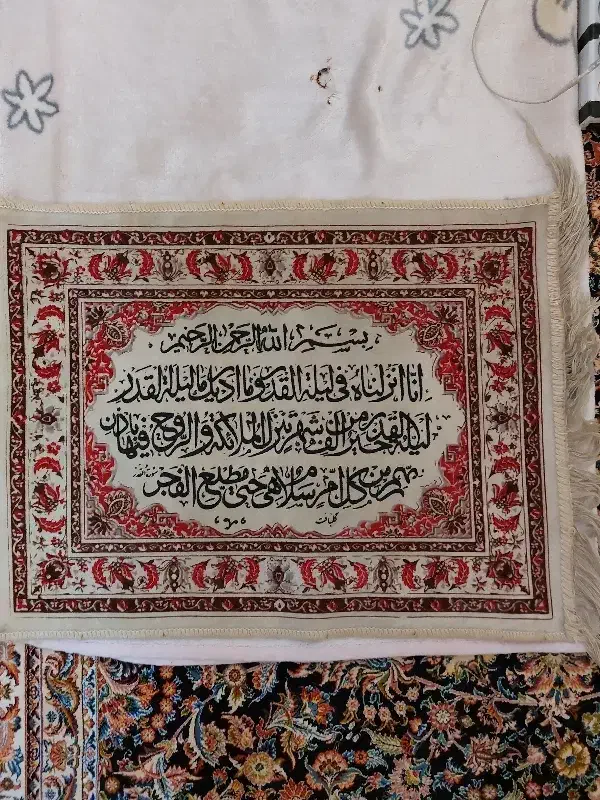 بسم الله الرحمن الرحیم
انا انزلناه فی لیلة القدر و ما ادریک ما لیلة القدر
لیلة القدر خیر من الف شهر تنزل الملائکة و الروح فیها باذن
ربهم من کل امر سلام هی حتی مطلع الفجر
گلبافت